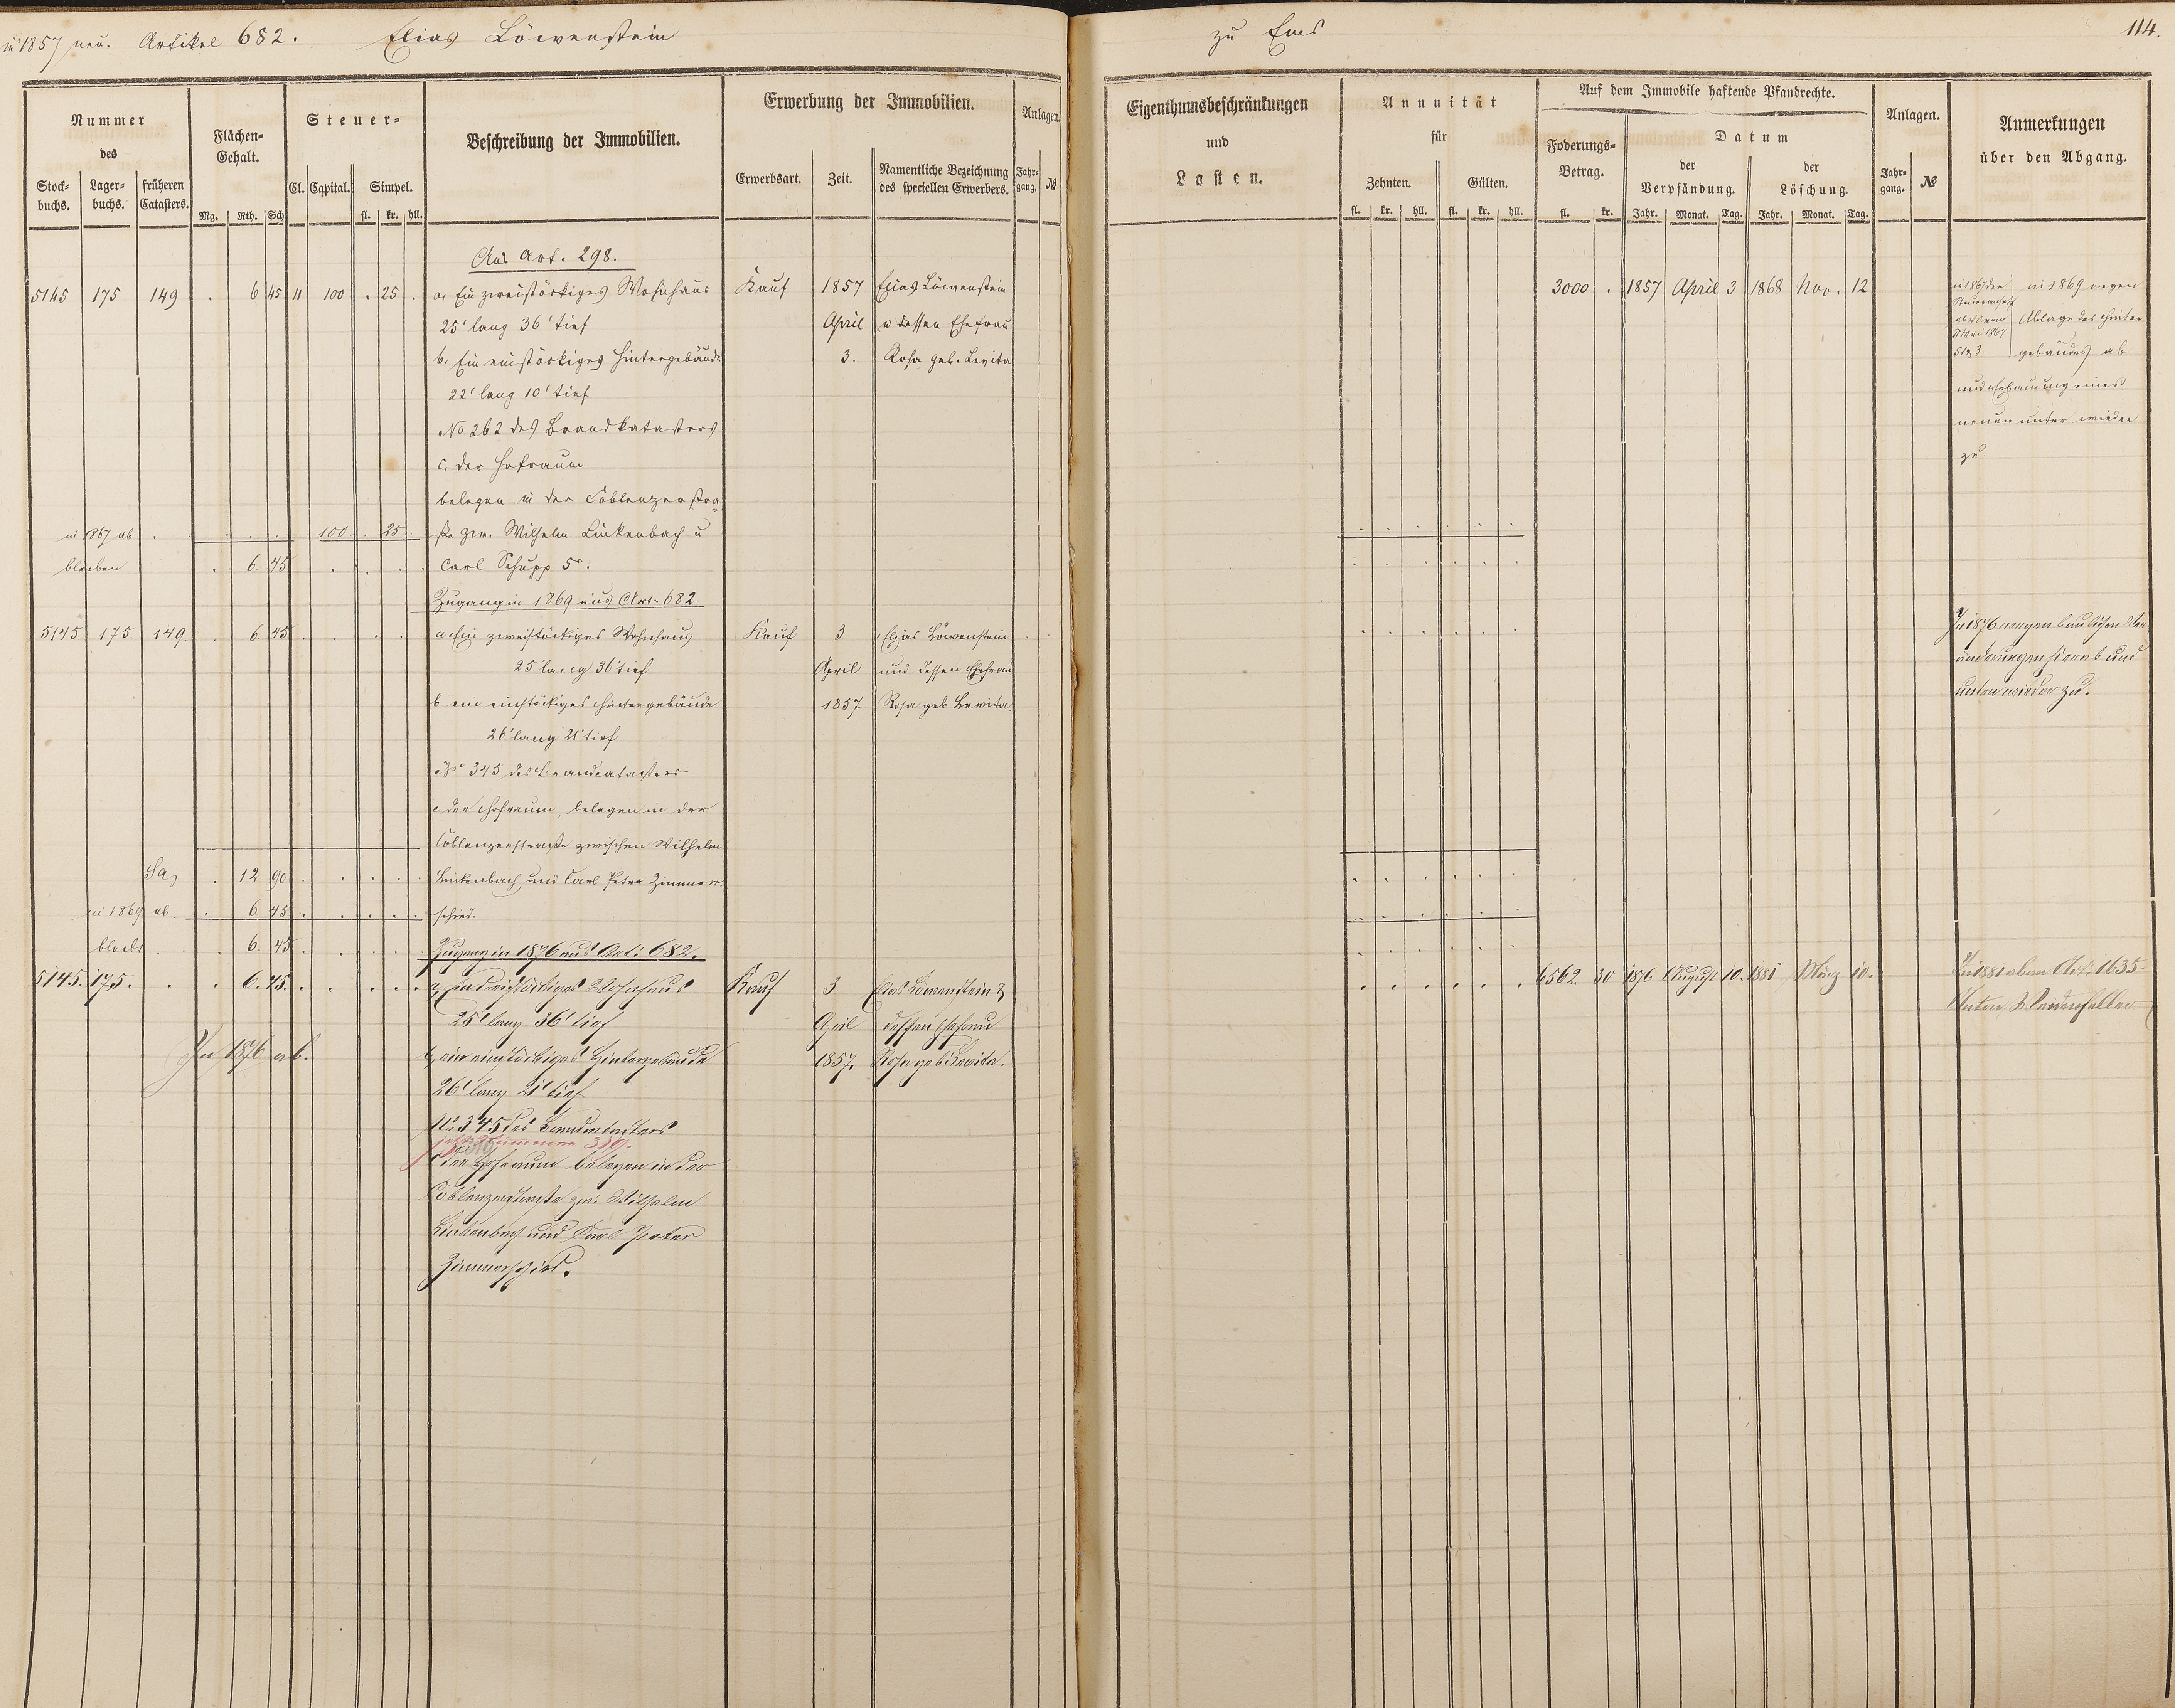 in 1857 neu. Artikel 682. Elias Löwenstein zu Ems 114.
Nummer des
Stockbuchs. Lagerbuchs. früheren Catasters.
Flächen-Gehalt.
Mg. Rth. Sch
Steuer-
Cl. Capital. Simpel.
fl. kr. hll.
Beschreibung der Immobilien.
Erwerbung der Immobilien.
Erwerbsart. Zeit. Namentliche Bezeichnung des speciellen Erwerbers.
Anlagen.
Jahrgang. №
Eigenthumsbeschränkungen
und
Lasten.
Annuität
für
Zehnten. Gülten.
fl. kr. hll. fl. kr. hll.
Auf dem Immobile haftende Pfandrechte.
Foderungs-Betrag.
fl. kr.
Datum
der Verpfändung. der Löschung.
Jahr. Monat. Tag. Jahr. Monat. Tag.
Anlagen.
Jahrgang. №
Anmerkungen
über den Abgang.
Aus Art. 298.
5145 175 149 . 6 45 11 100 . 25 . a, Ein zweistöckiges Wohnhaus Kauf 1857 Elias Löwenstein 3000 . 1857 April 3 1868 Nov. 12
25' lang 36' tief April u dessen Ehefrau
b. Ein einstöckiges Hintergebäude 3. Rosa geb. Levita
22' lang 10' tief
No 262 des Brandkatasters
c. der Hofraum
belegen in der Coblenzerstra-
in 1867 ab . . . . 100 . 25 . ße zw. Wilhelm Linkenbach u
bleiben . 6 45 . . . . Carl Schupp 5r.
in 1869 wegen
Ablage des Hinter
gebäudes ab
und Erbauung eines
neuen unten wieder
zu
Zugang in 1869 aus Art. 682.
5145 175 149 . 6 45 . . . . a Ein zweistöckiges Wohnhaus Kauf 3 Elias Löwenstein
25' lang 36' tief April und dessen Ehefrau
b ein einstöckiges Hintergebäude 1857 Rosa geb Levita
26' lang 21' tief
No 345 des Brandcatasters
c der Hofraum, belegen in der
Coblenzerstraße zwischen Wilhelm
Sa, . 12 90 . . . . Linkenbach und Carl Peter Zimmer-
in 1869 ab . 6 45 . . . . schied.
bleibt . 6. 45 . . . .
In 1876 wegen baulichen Ver
änderungen hier ab und
unten wieder zu.
Zugang in 1876 aus Art: 682.
5145. 175. . . 6. 45. . . . . . a, Ein dreistöckiges Wohnhaus Kauf 3 Elias Löwenstein & 6562. 30 1876 August 10. 1881 März 10. In 1881 oben Art. 1635.
25' lang 36' tief April dessen Ehefrau Anton
In 1876 ab. b, ein einstöckiges Hintergebäude 1857. Rosa geb. Levita.
26' lang 21' tief
No 345 des Brandcatasters
jetzt Nummer 319.
c der Hofraum belegen in der
Coblenzerstraße zw. Wilhelm
Linkenbach und Carl Peter
Zimmerschied.